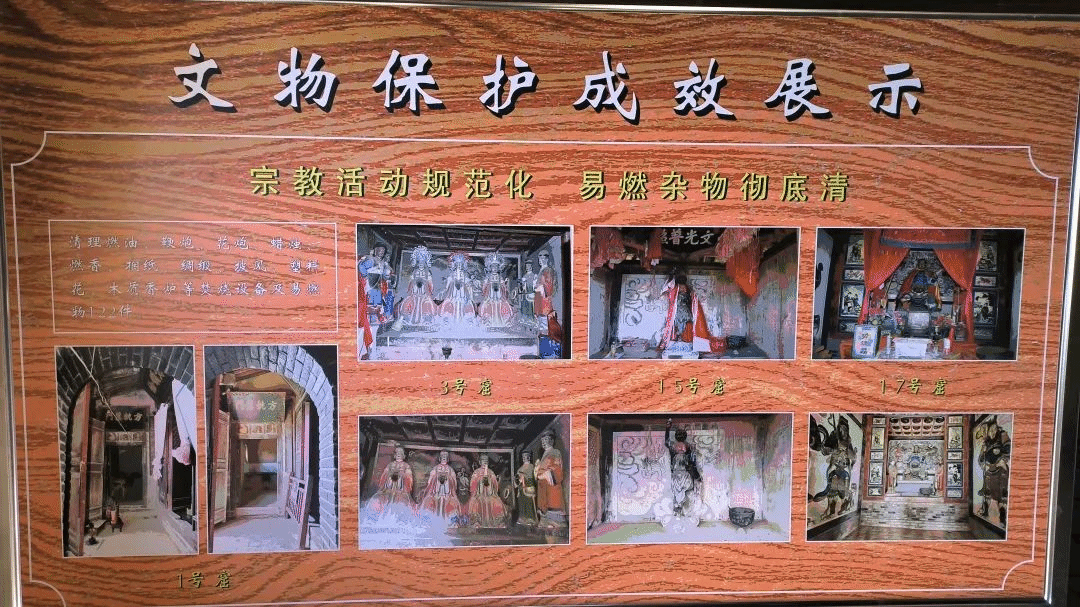 文物保护成效展示
宗教活动规范化 易燃杂物彻底清
清理燃油、鞭炮、花炮、蜡烛、
燃香、捆纸、绸缎、披风、塑料
花、木质香炉等焚烧设备及易燃
物122件
3号窟
15号窟
17号窟
1号窟